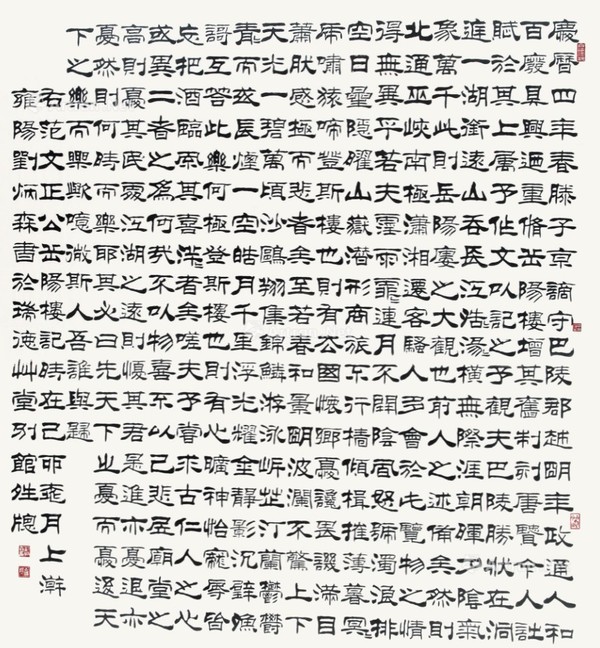 慶曆四年春滕子京謫守巴陵郡越明年政通人和
百廢具興迺重脩岳陽樓增其舊制刻唐賢今人詩
賦於其上屬予作文以記之予觀夫巴陵勝狀在洞
庭一湖銜遠山吞長江浩〻湯〻橫無際涯朝暉夕陰氣
象萬千此則岳陽樓之大觀也前人之述備矣然則
北通巫峽南極瀟湘遷客騷人多會於此覽物之情
得無異乎若夫霪雨霏〻連月不開陰風怒號濁浪排
空日星隱曜山嶽潛形商旅不行檣傾楫摧薄暮冥〻
虎嘯猿啼登斯樓也則有去國懷鄉憂讒畏譏滿目
蕭然感極而悲者矣至若春和景明波瀾不驚上下
天光一碧萬頃沙鷗翔集錦鱗游泳岸芷汀蘭鬱鬱
青〻而或長煙一空皓月千里浮光耀金靜影沉璧漁
歌互答此樂何極登斯樓也則有心曠神怡寵辱皆
忘把酒臨風其喜洋〻者矣嗟夫予嘗求古仁人之心
或異二者之為何哉不以物喜不以己悲居廟堂之
高則憂其民處江湖之遠則憂其君是進亦憂退亦
憂然則何時而樂耶其必曰先天下之憂而憂後天
下之樂而樂歟噫微斯人吾誰與歸
右范文正公岳陽樓記時在己月上澣
雍陽劉炳森書於瑞德艸堂別館牕